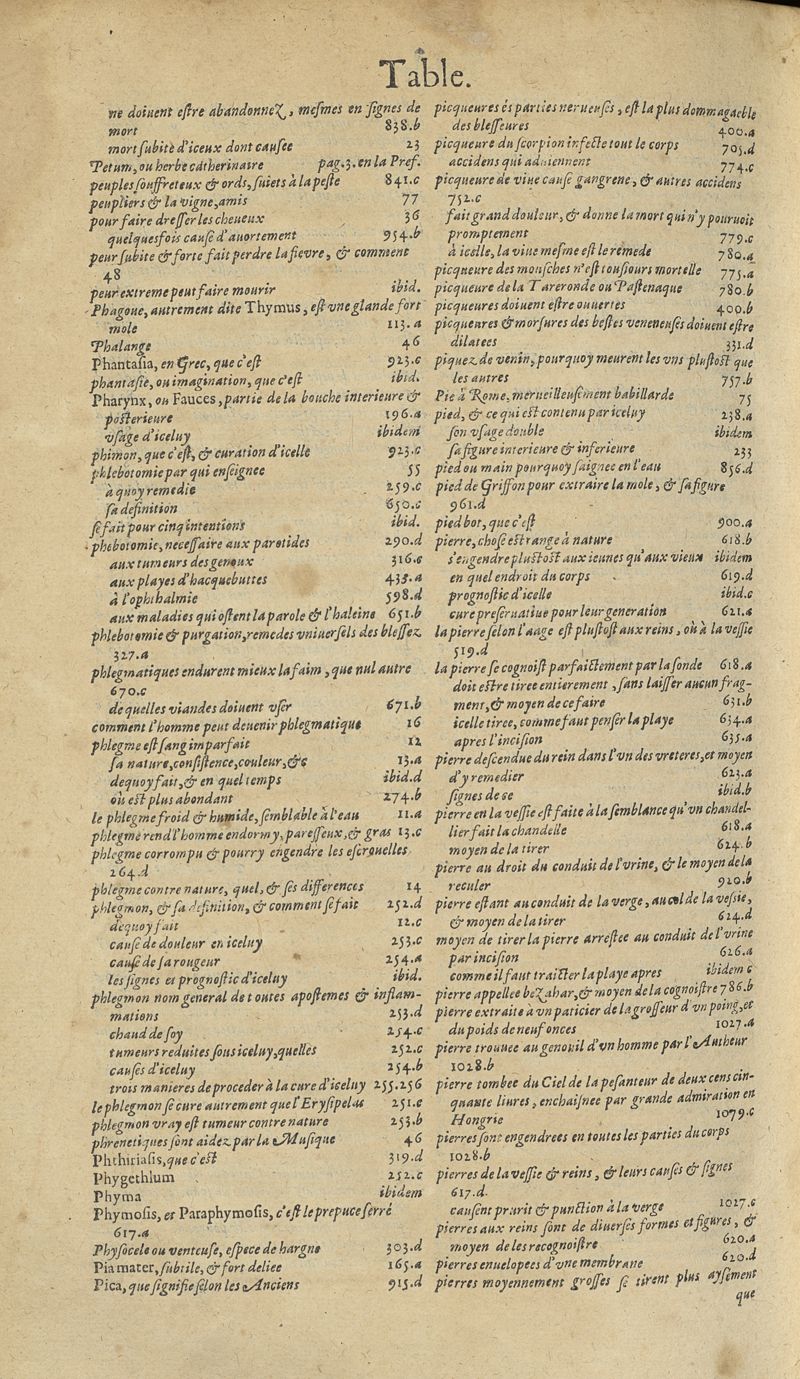 Table.
ne doiuent eſtre abandonnez, meſmes en ſignes de
mort 838.b
mort ſubite d'iceux dont cauſee 23
Petum, ou herbe catherinaire pag.3. en la Pref.
peuples ſouffreteux & ords, ſuiets à la peſte 841.c
peupliers & la vigne, amis 77
pour faire dreſſer les cheueux 36
quelquesfois cauſe d'auortement 954.b
peur ſubite & forte fait perdre la fieure, & comment
48
peur extreme peut faire mourir ibid.
Phagoue, autrement dite Thymus, eſt vne glande fort
mole 113.a
Phalange 46
Phantaſia, en Grec, que c'eſt 923.c
phantaſie, ou imagination, que c'eſt ibid.
Pharynx, ou Fauces, partie de la bouche interieure &
poſterieure 196.a
vſage d'iceluy ibidem
phimon, que c'eſt, & curation d'icelle 923.c
phlebotomie par qui enſeignee 55
à quoy remedie 259.c
ſa definition 650.c
ſe fait pour cinq intentions ibid.
phebotomie, neceſſaire aux parotides 290.d
aux tumeurs des genoux 316.c
aux playes d'hacquebuttes 435.a
à l'ophthalmie 598.d
aux maladies qui oſtent la parole & l'haleine 651.b
phlebotomie & purgation, remedes vniuerſels des bleſſez
327.a
phlegmatiques endurent mieux la faim, que nul autre
670.c
de quelles viandes doiuent vſer 671.b
comment l'homme peut deuenir phlegmatique 16
phlegme eſt ſang imparfait 12
ſa nature, conſiſtence, couleur, &c 13.a
dequoy fait, & en quel temps ibid.d
où eſt plus abondant 274.b
le phlegme froid & humide, ſemblable à l'eau 11.a
phlegme rend l'homme endormy, pareſſeux, & gras 13.c
phlegme corrompu & pourry engendre les eſcrouelles
264.d
phlegme contre nature, quel, & ſes differences 14
phlegmon, & ſa definition, & comment ſe fait 252.d
dequoy fait 12.c
cauſe de douleur en iceluy 253.c
cauſe de ſa rougeur 254.a
les ſignes et prognoſtic d'iceluy ibid.
phlegmon nom general de toutes apoſtemes & inflam-
mations 253.d
chaud de ſoy 254.c
tumeurs reduites ſous iceluy, quelles 252.c
cauſes d'iceluy 254.b
trois manieres de proceder à la cure d'iceluy 255.256
le phlegmon ſe cure autrement que l'Eryſipelas 251.c
phlegmon vray eſt tumeur contre nature 253.b
phrenetiques ſont aidez par la Muſique 46
Phthiriaſis, que c'eſt 319.d
Phygethlum 252.c
Phyma ibidem
Phymoſis, et Paraphymoſis, c'eſt le prepuce ſerré
617.a
Phyſocele ou venteuſe, eſpece de hargne 303.d
Piamater, ſubtile, & fort deliee 165.a
Pica, que ſignifie ſelon les Anciens 915.d
picqueures és parties nerueuſes, eſt la plus dommageable
des bleſſeures 400.a
picqueure du ſcorpion infecte tout le corps 705.d
accidens qui aduiennent 774.c
picqueure de viue cauſe gangrene, & autres accidens
752.c
fait grand douleur, & donne la mort qui n'y pouruoit
promptement 779.c
à icelle, la viue meſme eſt le remede 780.a
picqueure des mouſches n'eſt touſiours mortelle 775.a
picqueure de la Tareronde ou Paſtenaque 780.b
picqueures doiuent eſtre ouuertes 400.b
picqueures & morſures des beſtes veneneuſes doiuent eſtre
dilatees 331.d
piquez de venin, pourquoy meurent les vns pluſtoſt que
les autres 757.b
Pie à Rome, merueilleuſement babillarde 75
pied, & ce qui eſt contenu par iceluy 238.a
ſon vſage double ibidem
ſa figure interieure & inferieure 233
pied ou main pourquoy ſaignee en l'eau 856.d
pied de Griffon pour extraire la mole, & ſa figure
961.d
pied bot, que c'eſt 900.a
pierre, choſe eſtrange à nature 618.b
s'engendre pluſtoſt aux ieunes qu'aux vieux ibidem
en quel endroit du corps 619.d
prognoſtic d'icelle ibid.c
cure preſeruatiue pour leur generation 621.a
la pierre ſelon l'aage eſt pluſtoſt aux reins, ou à la veſſie
519.d
la pierre ſe cognoiſt parfaictement par la ſonde 618.a
doit eſtre tiree entierement, ſans laiſſer aucun frag-
ment, & moyen de ce faire 631.b
icelle tiree, comme faut penſer la playe 634.a
apres l'inciſion 635.a
pierre deſcendue du rein dans l'vn des vreteres, et moyen
d'y remedier 623.a
ſignes de ce ibid.b
pierre en la veſſie eſt faite à la ſemblance qu'vn chandel-
lier fait la chandelle 618.a
moyen de la tirer 624.b
pierre au droit du conduit de l'vrine, & le moyen de la
reculer 920.b
pierre eſtant au conduit de la verge, au col de la veſsie,
& moyen de la tirer 624.d
moyen de tirer la pierre arreſtee au conduit de l'vrine
par inciſion 626.a
comme il faut traicter la playe apres ibidem c
pierre appellee bezahar, & moyen de la cognoiſtre 786.b
pierre extraite à vn paticier de la groſſeur d'vn poing, et
du poids de neuf onces 1027.a
pierre trouuee au genouil d'vn homme par l'Autheur
1028.b
pierre tombee du Ciel de la peſanteur de deux cens cin-
quante liures, enchaiſnee par grande admiration en
Hongrie 1079.c
pierres ſont engendrees en toutes les parties du corps
1028.b
pierres de la veſſie & reins, & leurs cauſes & ſignes
617.d.
cauſent prurit & punction à la verge 1027.c
pierres aux reins ſont de diuerſes formes et figures, &
moyen de les recognoiſtre 620.a
pierres enuelopees d'vne membrane 620.d
pierres moyennement groſſes ſe tirent plus ayſément
que